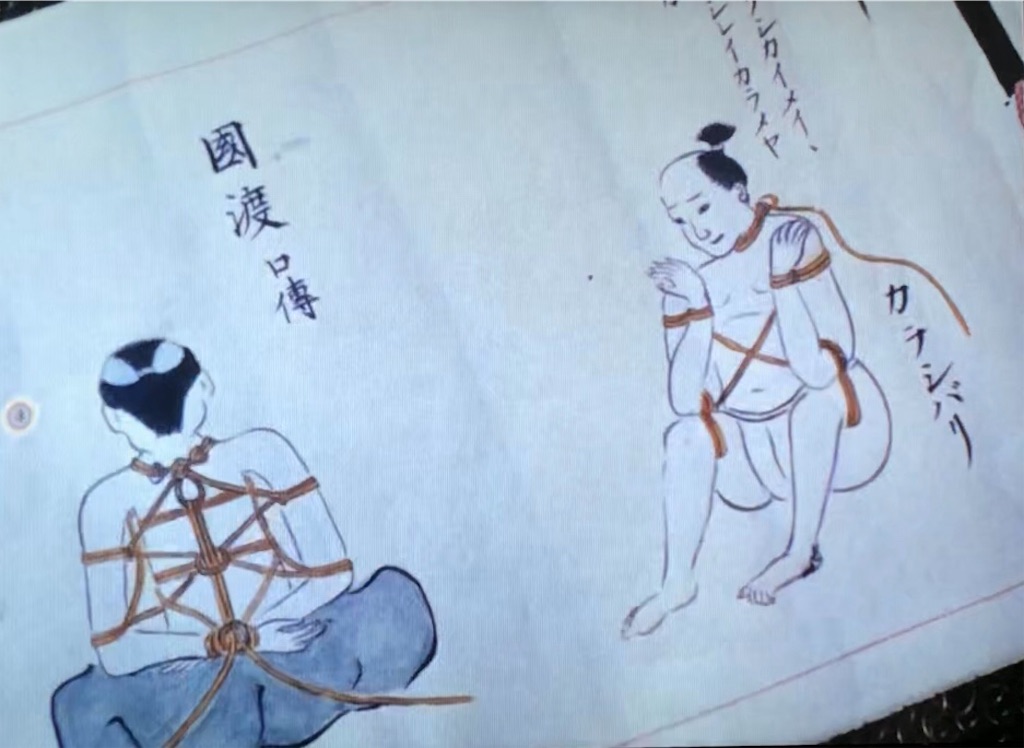 シカイメイ、
シレイカラメヤ
カナシバリ
國渡
口傳